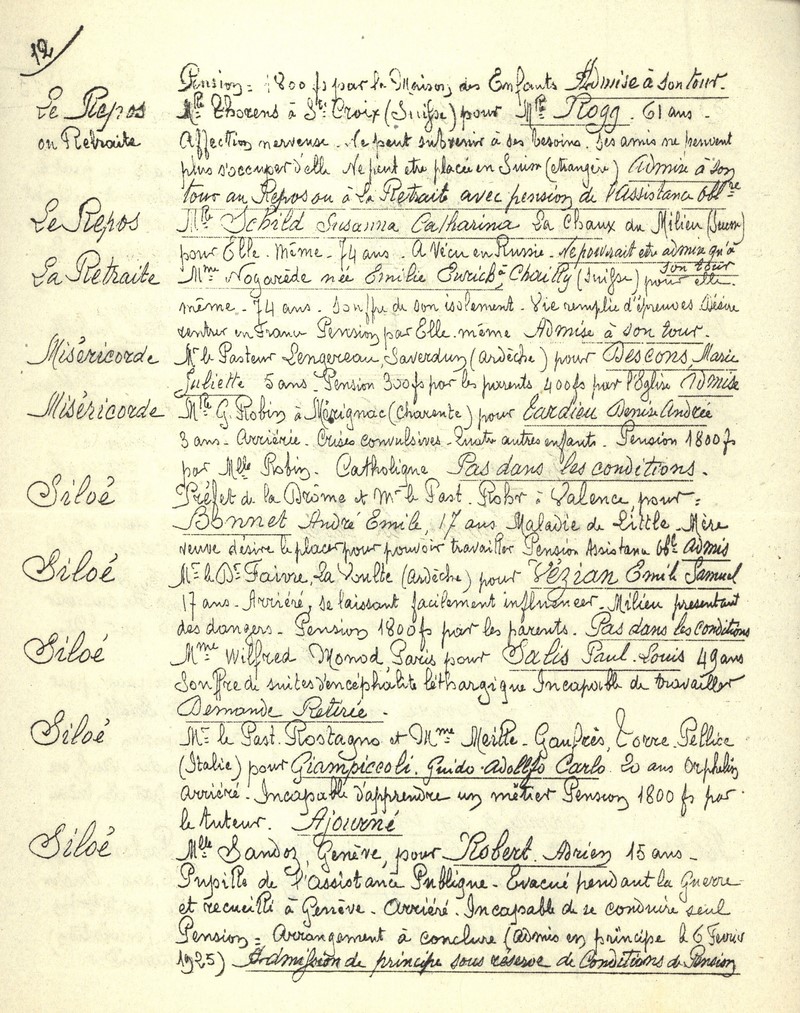 12
Pension = 1800 fs par la Maison des Enfants Admise à son tour.
Le Repos Mlle Thorens à Ste Croix (Suisse) pour Mlle Rogg. 61 ans.
ou Retraite Affection nerveuse. Ne peut subvenir à ses besoins. Ses amis ne peuvent
plus s'occuper d'elle Ne peut etre placée en Suisse (étrangère) Admise à son
tour au Repos ou à La Retraite avec pension de l'Assistance oblre
Le Repos Mlle Schild Susanna Catharina La Chaux du Milieu (Suisse)
pour Elle-Même - 74 ans. A vécu en Russie. Ne pourrait etre admise qu'à
son tour
La Retraite Mme Nogarède née Emilie Eurich à Chailly (Suisse) pour elle-
même - 74 ans. Souffre de son isolement. Vie remplie d'épreuves Désire
rentrer en France Pension par Elle-même Admise à son tour.
Miséricorde Mr le Pasteur Lengereau, Saverdun (Ardèche) pour Descons, Marie
Juliette 5 ans. Pension 300 fs par les parents 400 fs par l'Eglise Admise
Miséricorde Mlle G. Robin à Mérignac (Charente) pour Tardieu Denise Andrée
3 ans - Arriérée. Crises convulsives. Quatre autres enfants. Pension 1800 fs
par Mlle Robin. Catholique Pas dans les conditions.
Siloé Préfet de la Drôme et Mr le Past. Rohr à Valence, pour =
Bonnet André Emile, 17 ans Maladie de Little. Mère
veuve désire le placer pour pouvoir travailler Pension Assistance oble Admis
Siloé Mr le Dr Faivre, La Voulte (Ardèche) pour Vézian Emile Samuel
17 ans - Arriéré, se laissant facilement influencer. Milieu présentant
des dangers. Pension 1800 fs par les parents. Pas dans les conditions
Siloé Mme Wilfred Monod, Paris pour Salis Paul-Louis 49 ans
Souffre de suites d'encéphalite léthargique Incapable de travailler
Demande Retirée.
Siloé Mr le Past. Rostagno et Mme Meille-Gaufrès, Torre-Pellice
(Italie) pour Giampiccoli. Guido-Adolfo Carlo. 20 ans Orphelin
arriéré. Incapable d'apprendre un métier Pension 1800 fs par
le tuteur. Ajourné
Siloé Mlle Sandoz, Genève, pour Robert. Adrien 15 ans -
Pupille de l'Assistance Publique - Evacué pendant la Guerre
et recueilli à Genève - Arriéré. Incapable de se conduire seul
Pension = Arrangement à conclure (Admis en principe le 6 Fevrier
1925) Admission de principe sous réserve de Conditions de Pension